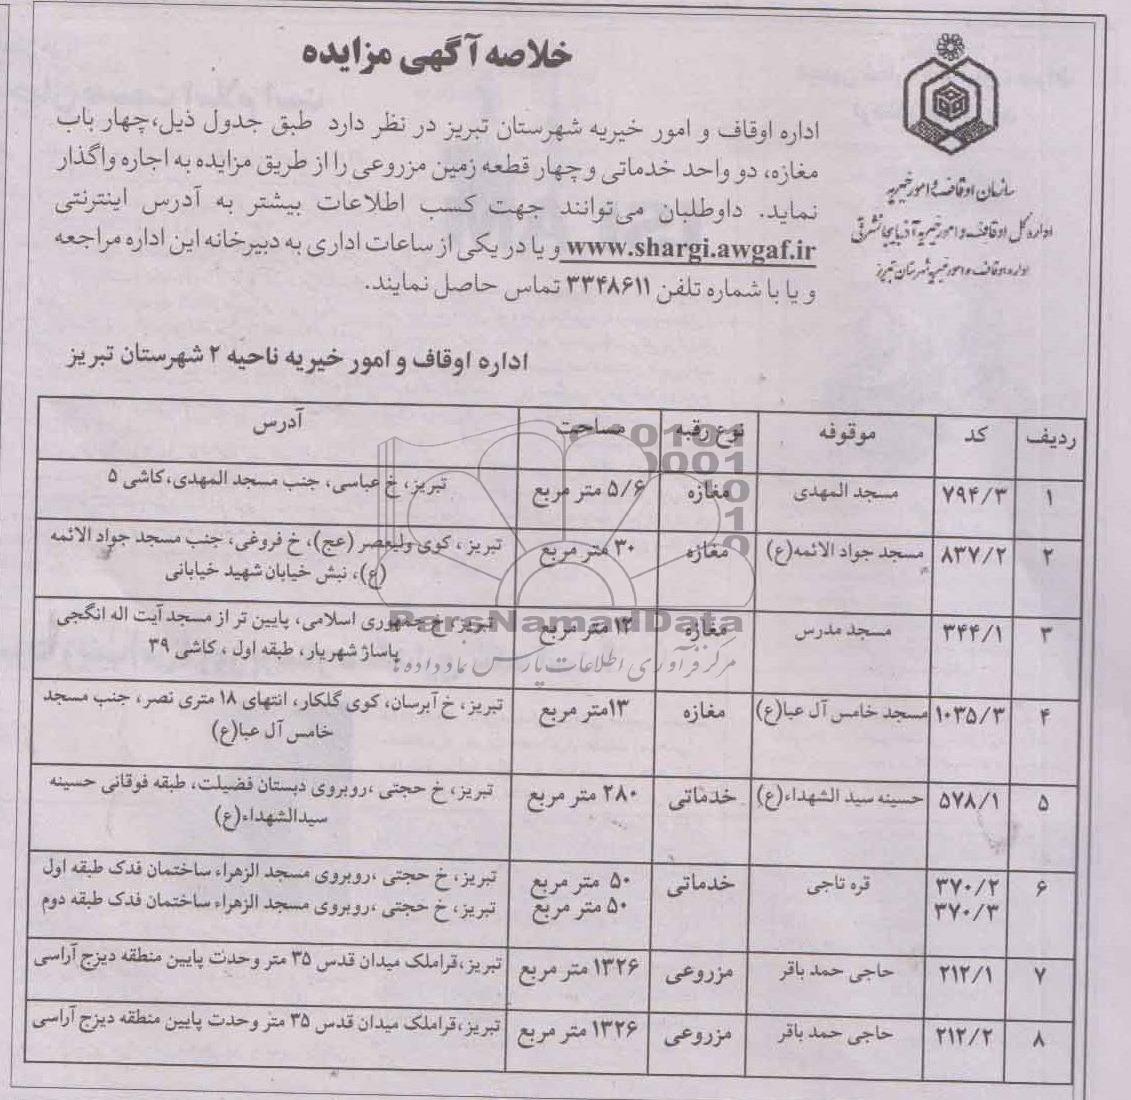 خلاصه آگهی مزایده
سازمان اوقاف و امور خیریه
اداره کل اوقاف و امور خیریه آذربایجان شرقی
اداره اوقاف و امور خیریه شهرستان تبریز
اداره اوقاف و امور خیریه شهرستان تبریز در نظر دارد طبق جدول ذیل،چهار باب
مغازه، دو واحد خدماتی و چهار قطعه زمین مزروعی را از طریق مزایده به اجاره واگذار
نماید. داوطلبان می‌توانند جهت کسب اطلاعات بیشتر به آدرس اینترنتی
www.shargi.awgaf.ir و یا در یکی از ساعات اداری به دبیرخانه این اداره مراجعه
و یا با شماره تلفن ۳۳۴۸۶۱۱ تماس حاصل نمایند.
اداره اوقاف و امور خیریه ناحیه ۲ شهرستان تبریز
ردیف کد موقوفه نوع رقبه مساحت آدرس
۱ ۷۹۴/۳ مسجد المهدی مغازه ۵/۶ متر مربع تبریز، خ عباسی، جنب مسجد المهدی،کاشی ۵
۲ ۸۳۷/۲ مسجد جواد الائمه(ع) مغازه ۳۰ متر مربع تبریز، کوی ولیعصر (عج)، خ فروغی، جنب مسجد جواد الائمه
(ع)، نبش خیابان شهید خیابانی
۳ ۳۴۴/۱ مسجد مدرس مغازه ۱۲ متر مربع تبریز، خ جمهوری اسلامی، پایین تر از مسجد آیت اله انگجی
پاساژ شهریار، طبقه اول ، کاشی ۳۹
۴ ۱۰۳۵/۳ مسجد خامس آل عبا(ع) مغازه ۱۳متر مربع تبریز، خ آبرسان، کوی گلکار، انتهای ۱۸ متری نصر، جنب مسجد
خامس آل عبا(ع)
۵ ۵۷۸/۱ حسینه سید الشهداء(ع) خدماتی ۲۸۰ متر مربع تبریز، خ حجتی ،روبروی دبستان فضیلت، طبقه فوقانی حسینه
سیدالشهداء(ع)
۶ ۳۷۰/۲ قره تاجی خدماتی ۵۰ متر مربع تبریز، خ حجتی ،روبروی مسجد الزهراء ساختمان فدک طبقه اول
۳۷۰/۳ ۵۰ متر مربع تبریز، خ حجتی ،روبروی مسجد الزهراء ساختمان فدک طبقه دوم
۷ ۲۱۲/۱ حاجی حمد باقر مزروعی ۱۳۲۶ متر مربع تبریز،قراملک میدان قدس ۳۵ متر وحدت پایین منطقه دیزج آراسی
۸ ۲۱۲/۲ حاجی حمد باقر مزروعی ۱۳۲۶ متر مربع تبریز،قراملک میدان قدس ۳۵ متر وحدت پایین منطقه دیزج آراسی
ParsNamadData
مرکز فرآوری اطلاعات پارس نماد داده ها